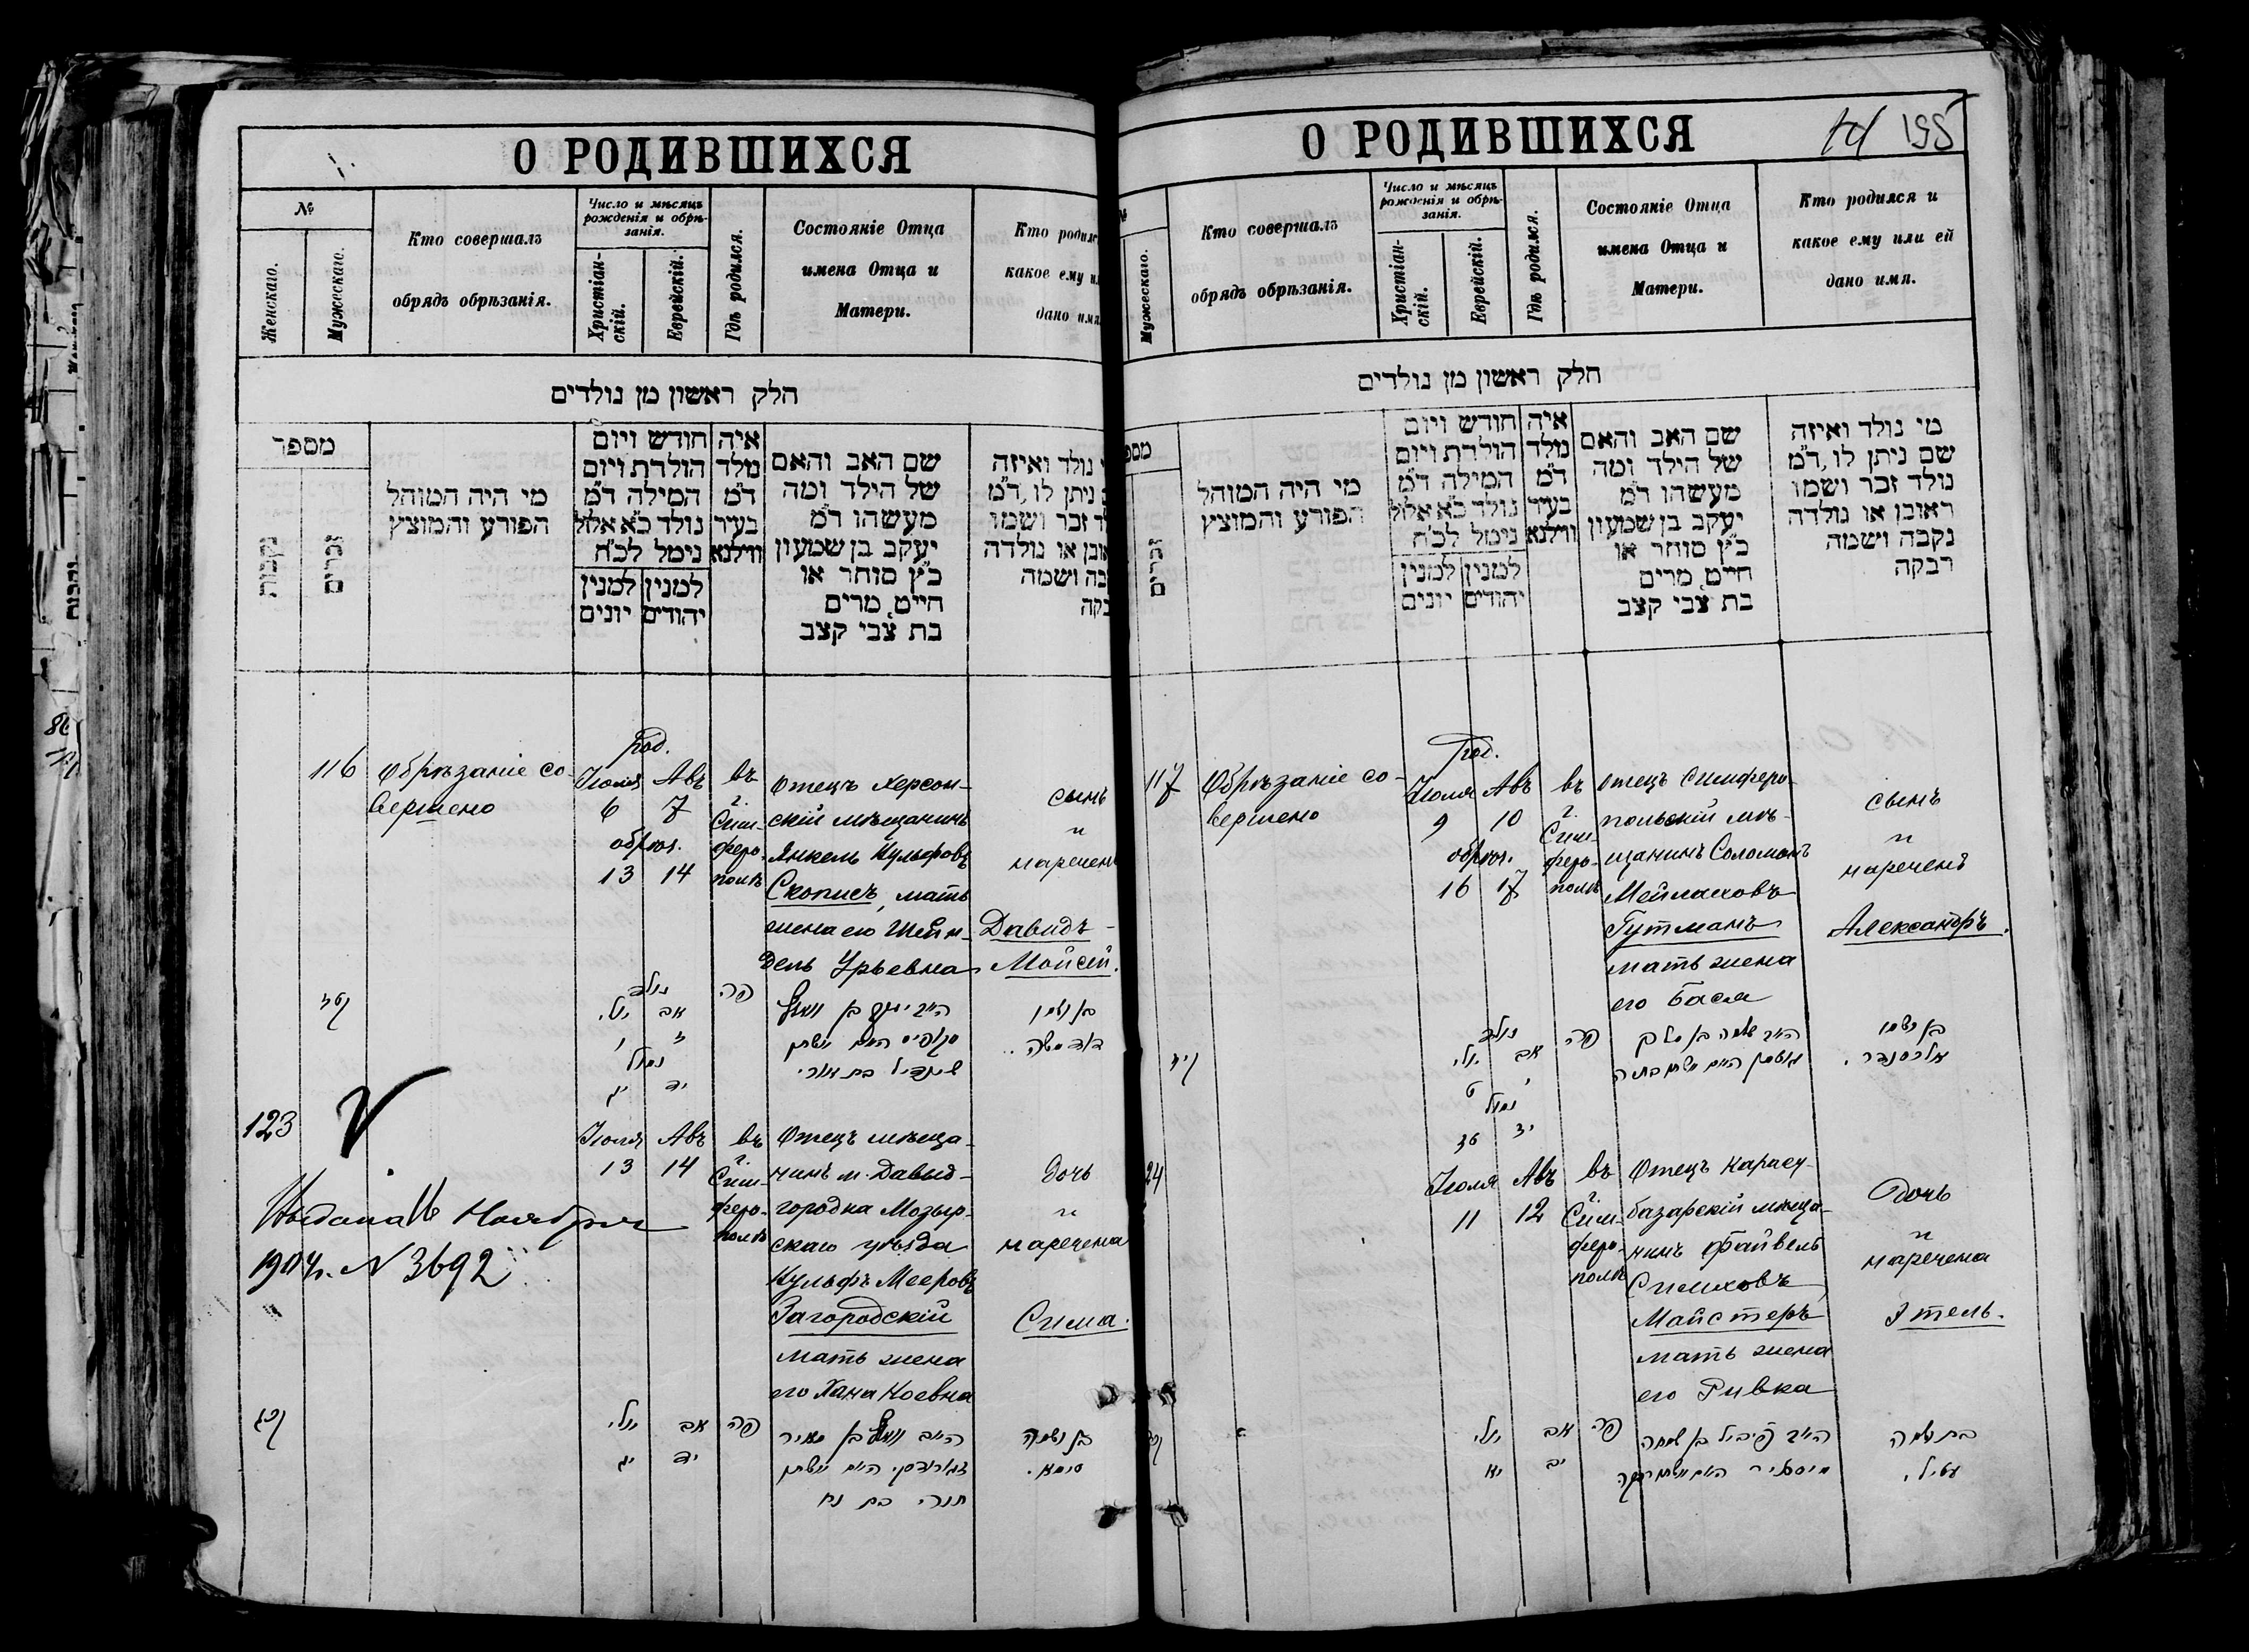 О РОДИВШИХСЯ
№
Женскаго.
Мужескаго.
Кто совершалъ
обрядъ обрѣзанія.
Число и мѣсяцъ
рожденія и обрѣ-
занія.
Христіан-
скій.
Еврейскій.
Гдѣ родился.
Состояніе Отца
имена Отца и
Матери.
Кто родилс
какое ему и
дано имя
חלק ראשון מן נולדים
מספר
נקבות
זכרים
מי היה המוהל
הפורע והמוצץ
חודש ויום
הולדת ויום
המילה ד״מ
נולד כ״א אלול
נימל לכ״ח
למנין יהודים
למנין יונים
איה
נולד
ד״מ
בעיר
ווילנא
שם האב והאם
של הילד ומה
מעשהו ד״מ
יעקב בן שמעון
כ״ץ סוחר או
חייט, מרים
בת צבי קצב
נולד ואיזה
ניתן לו, ד״מ
זכר ושמו
או נולדה
ושמה
116
Обрѣзаніе со-
вершено
род.
Іюля Авъ
6 7
обрѣз.
13 14
въ
г.
Сим-
феро-
полѣ
Отецъ Херсон-
скій мѣщанинъ
Янкель Кульфовъ
Скописъ, мать
жена его Шейн-
дель Урьевна
сынъ
и
нареченъ
Давидъ-
Мойсей.
נולד
אב יולי
ז ו
נמול
יד יג
פה
123
Іюля Авъ
13 14
въ
г.
Сим-
феро-
полѣ
Отецъ мѣща-
нинъ м. Давид-
городка Мозыр-
скаго уѣзда
Кульфъ Мееровъ
Загородскій
мать жена
его Хана Ноевна
дочь
и
наречена
Сима.
Ноября
1904г. № 3692
אב יולי
יד יג
פה
О РОДИВШИХСЯ
195
Мужескаго.
Кто совершалъ
обрядъ обрѣзанія.
Число и мѣсяцъ
рожденія и обрѣ-
занія.
Христіан-
скій.
Еврейскій.
Гдѣ родился.
Состояніе Отца
имена Отца и
Матери.
Кто родился и
какое ему или ей
дано имя.
חלק ראשון מן נולדים
זכרים
מי היה המוהל
הפורע והמוצץ
חודש ויום
הולדת ויום
המילה ד״מ
נולד כ״א אלול
נימל לכ״ח
למנין יהודים
למנין יונים
איה
נולד
ד״מ
בעיר
ווילנא
שם האב והאם
של הילד ומה
מעשהו ד״מ
יעקב בן שמעון
כ״ץ סוחר או
חייט, מרים
בת צבי קצב
מי נולד ואיזה
שם ניתן לו, ד״מ
נולד זכר ושמו
ראובן או נולדה
נקבה ושמה
רבקה
117
Обрѣзаніе со-
вершено
род.
Іюля Авъ
9 10
обрѣз.
16 17
въ
г.
Сим-
феро-
полѣ
Отецъ Симферо-
польскій мѣ-
щанинъ Соломонъ
Мейлаховъ
Гутманъ
мать жена
его Бася
сынъ
и
нареченъ
Александръ.
נולד
אב יולי
י ט
נמול
יז טז
פה
24
Іюля Авъ
11 12
въ
г.
Сим-
феро-
полѣ
Отецъ Карасу-
базарскій мѣща-
нинъ Файвель
Симховъ
Майстеръ
мать жена
его Ривка
дочь
и
наречена
Этель.
אב יולי
יב יא
פה